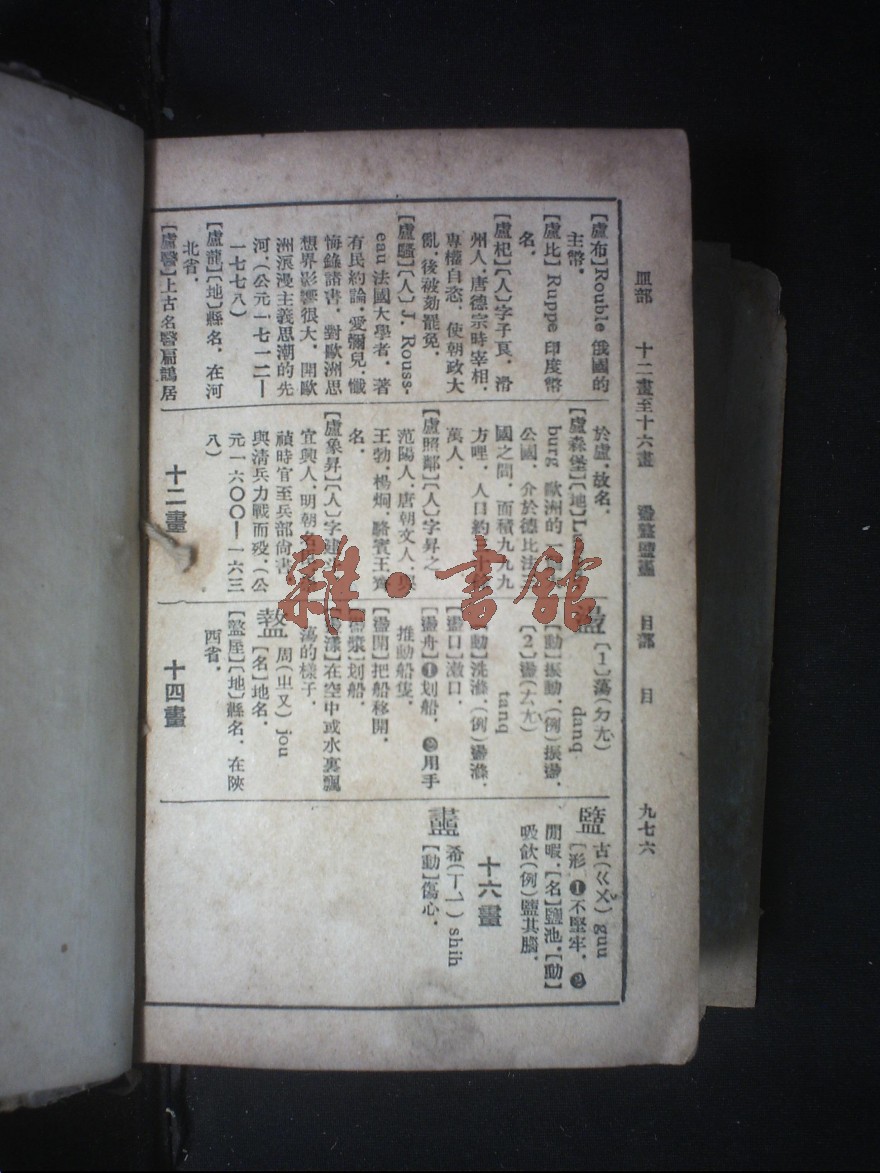 皿部　十二畫至十六畫　盪盩盬衋　目部　目　九七六
[盧布] Rouble 俄國的
主幣．
[盧比] Ruppe 印度幣
名．
[盧杞][人]字子良，滑
州人，唐德宗時宰相，
專權自恣，使朝政大
亂，後被劾罷免．
[盧騷][人] J. Rouss-
eau 法國大學者，著
有民約論，愛彌兒，懺
悔錄諸書，對歐洲思
想界影響很大，開歐
洲浪漫主義思潮的先
河．(公元一七一二—
一七七八)
[盧龍][地]縣名，在河
北省．
[盧醫]上古名醫扁鵲居
於盧，故名．
[盧森堡][地]
burg 歐洲的一
公國，介於德比法
國之間，面積九九九
方哩，人口約三十
萬人．
[盧照鄰][人]字昇之
范陽人，唐朝文人，與
王勃，楊炯，駱賓王齊
名．
[盧象昇][人]字建斗
宜興人，明朝
禎時官至兵部尚書
與清兵力戰而歿．(公
元一六〇〇—一六三
八)
十二畫
盪 [1]蕩(ㄉㄤ)
danq
[動]振動．(例)振盪．
[2]盪(ㄊㄤ)
tanq
[動]洗滌．(例)盪滌．
[盪口]漱口．
[盪舟]❶划船．❷用手
推動船隻．
[盪開]把船移開．
[盪槳]划船．
[盪漾]在空中或水裏飄
蕩的樣子．
盩 周(ㄓㄡ) jou
[名]地名．
[盩厔][地]縣名，在陝
西省．
十四畫
盬 古(ㄍㄨˇ) guu
[形]❶不堅牢．❷
閒暇．[名]鹽池．[動]
吸飲(例)盬其腦．
十六畫
衋 希(ㄒㄧ) shih
[動]傷心．
雜·書館